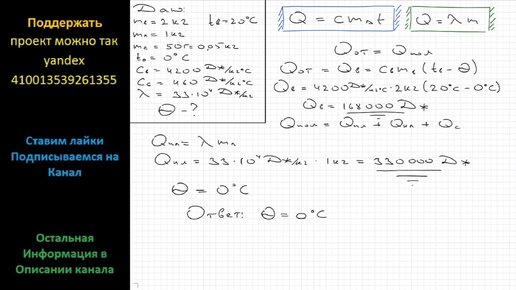 Поддержать
проект можно так
yandex
410013539261355
Ставим лайки
Подписываемся на
Канал
Остальная
Информация в
Описании канала
Дано:
mв=2кг tв=20°C
mл=1кг
mс=50г=0,05кг
t₀=0°C
Cв=4200 Дж/кг°C
Cс=460 Дж/кг°C
λ=33·10⁴ Дж/кг
Θ-?
Q=cmΔt
Q=λm
Qот=Qпол
Qот=Qв=Cвmв(tв-Θ)
Qв=4200Дж/кг°C·2кг(20°C-0°C)
Qв=168000Дж
Qпол=Qпл+Qпл+Qс
Qпл=λmл
Qпл=33·10⁴Дж/кг·1кг=330000Дж
Θ=0°C
Ответ: Θ=0°C